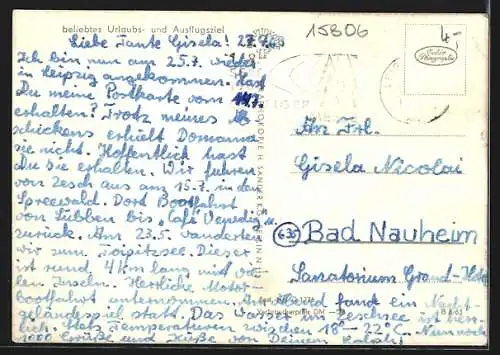 beliebtes Urlaubs- und Ausflugsziel
15806
4,-
Liebe Tante Gisela! 27.7.
Ich bin nun am 25.7. wieder
in Leipzig angekommen. Hast
Du meine Postkarte vom 14.7.
erhalten? Trotz meines
schickens erhielt
sie nicht. Hoffentlich hast
Du sie erhalten. Wir fuhren
von Zesch aus am 15.7. in den
Spreewald. Dort Bootfahrt
von Lübben bis "Café Venedig" u.
zurück. Am 23.5. wanderten
wir zum Teupitzsee. Dieser
ist rund 4 km lang mit
len Inseln. Herrliche Motor-
bootfahrt unternommen. Am Abend fand ein Nacht-
geländespiel statt. Das Wasser im Zeschsee ist herr-
lich. Stets Temperaturen zwischen 18°-22°C. Nun noch
1000 Grüße und Küsse von Deinem Ralph!
An Frl.
Gisela Nicolai
635 Bad Nauheim
Sanatorium Grand-Hotel
Echte Photographie
Verbraucherpreis DM